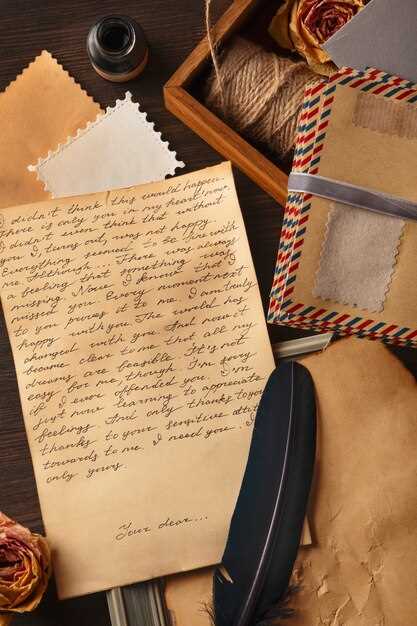 I didn't think this would happen.
There is only you in my heart now.
I didn't even think that without
you I, turns out, was not happy.
Everything seemed to be fine with
me, although... There was always
a feeling that something was
missing. Now I know that I
missed you. Every moment next
to you proves it to me. I am truly
happy with you. The world has
changed with you. And now it
became clear to me that all my
dreams are feasible. It's not
easy for me, though. I'm sorry
if I ever offended you. I'm
just now learning to appreciate
feelings. And only thanks to you
thanks to your sensitive
towards to me. I need you. I
only yours.
Your dear...